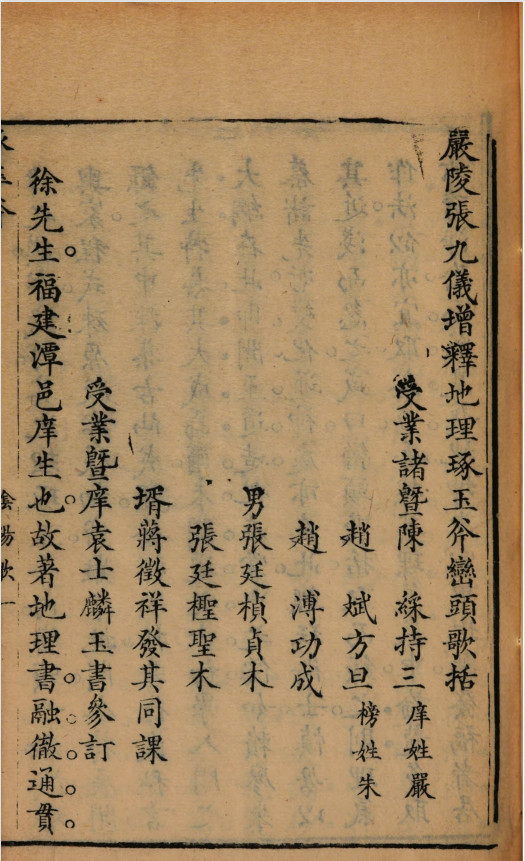 嚴陵張九儀增釋地理琢玉斧巒頭歌括
受業諸暨陳 綵持三 庠姓嚴
趙 斌方旦 榜姓朱
趙 溥功成
男張廷楨貞木
張廷檉聖木
壻蔣徵祥發其同課
受業暨庠袁士麟玉書參訂
徐先生福建潭邑庠生也故著地理書融徹通貫
陰陽歌一